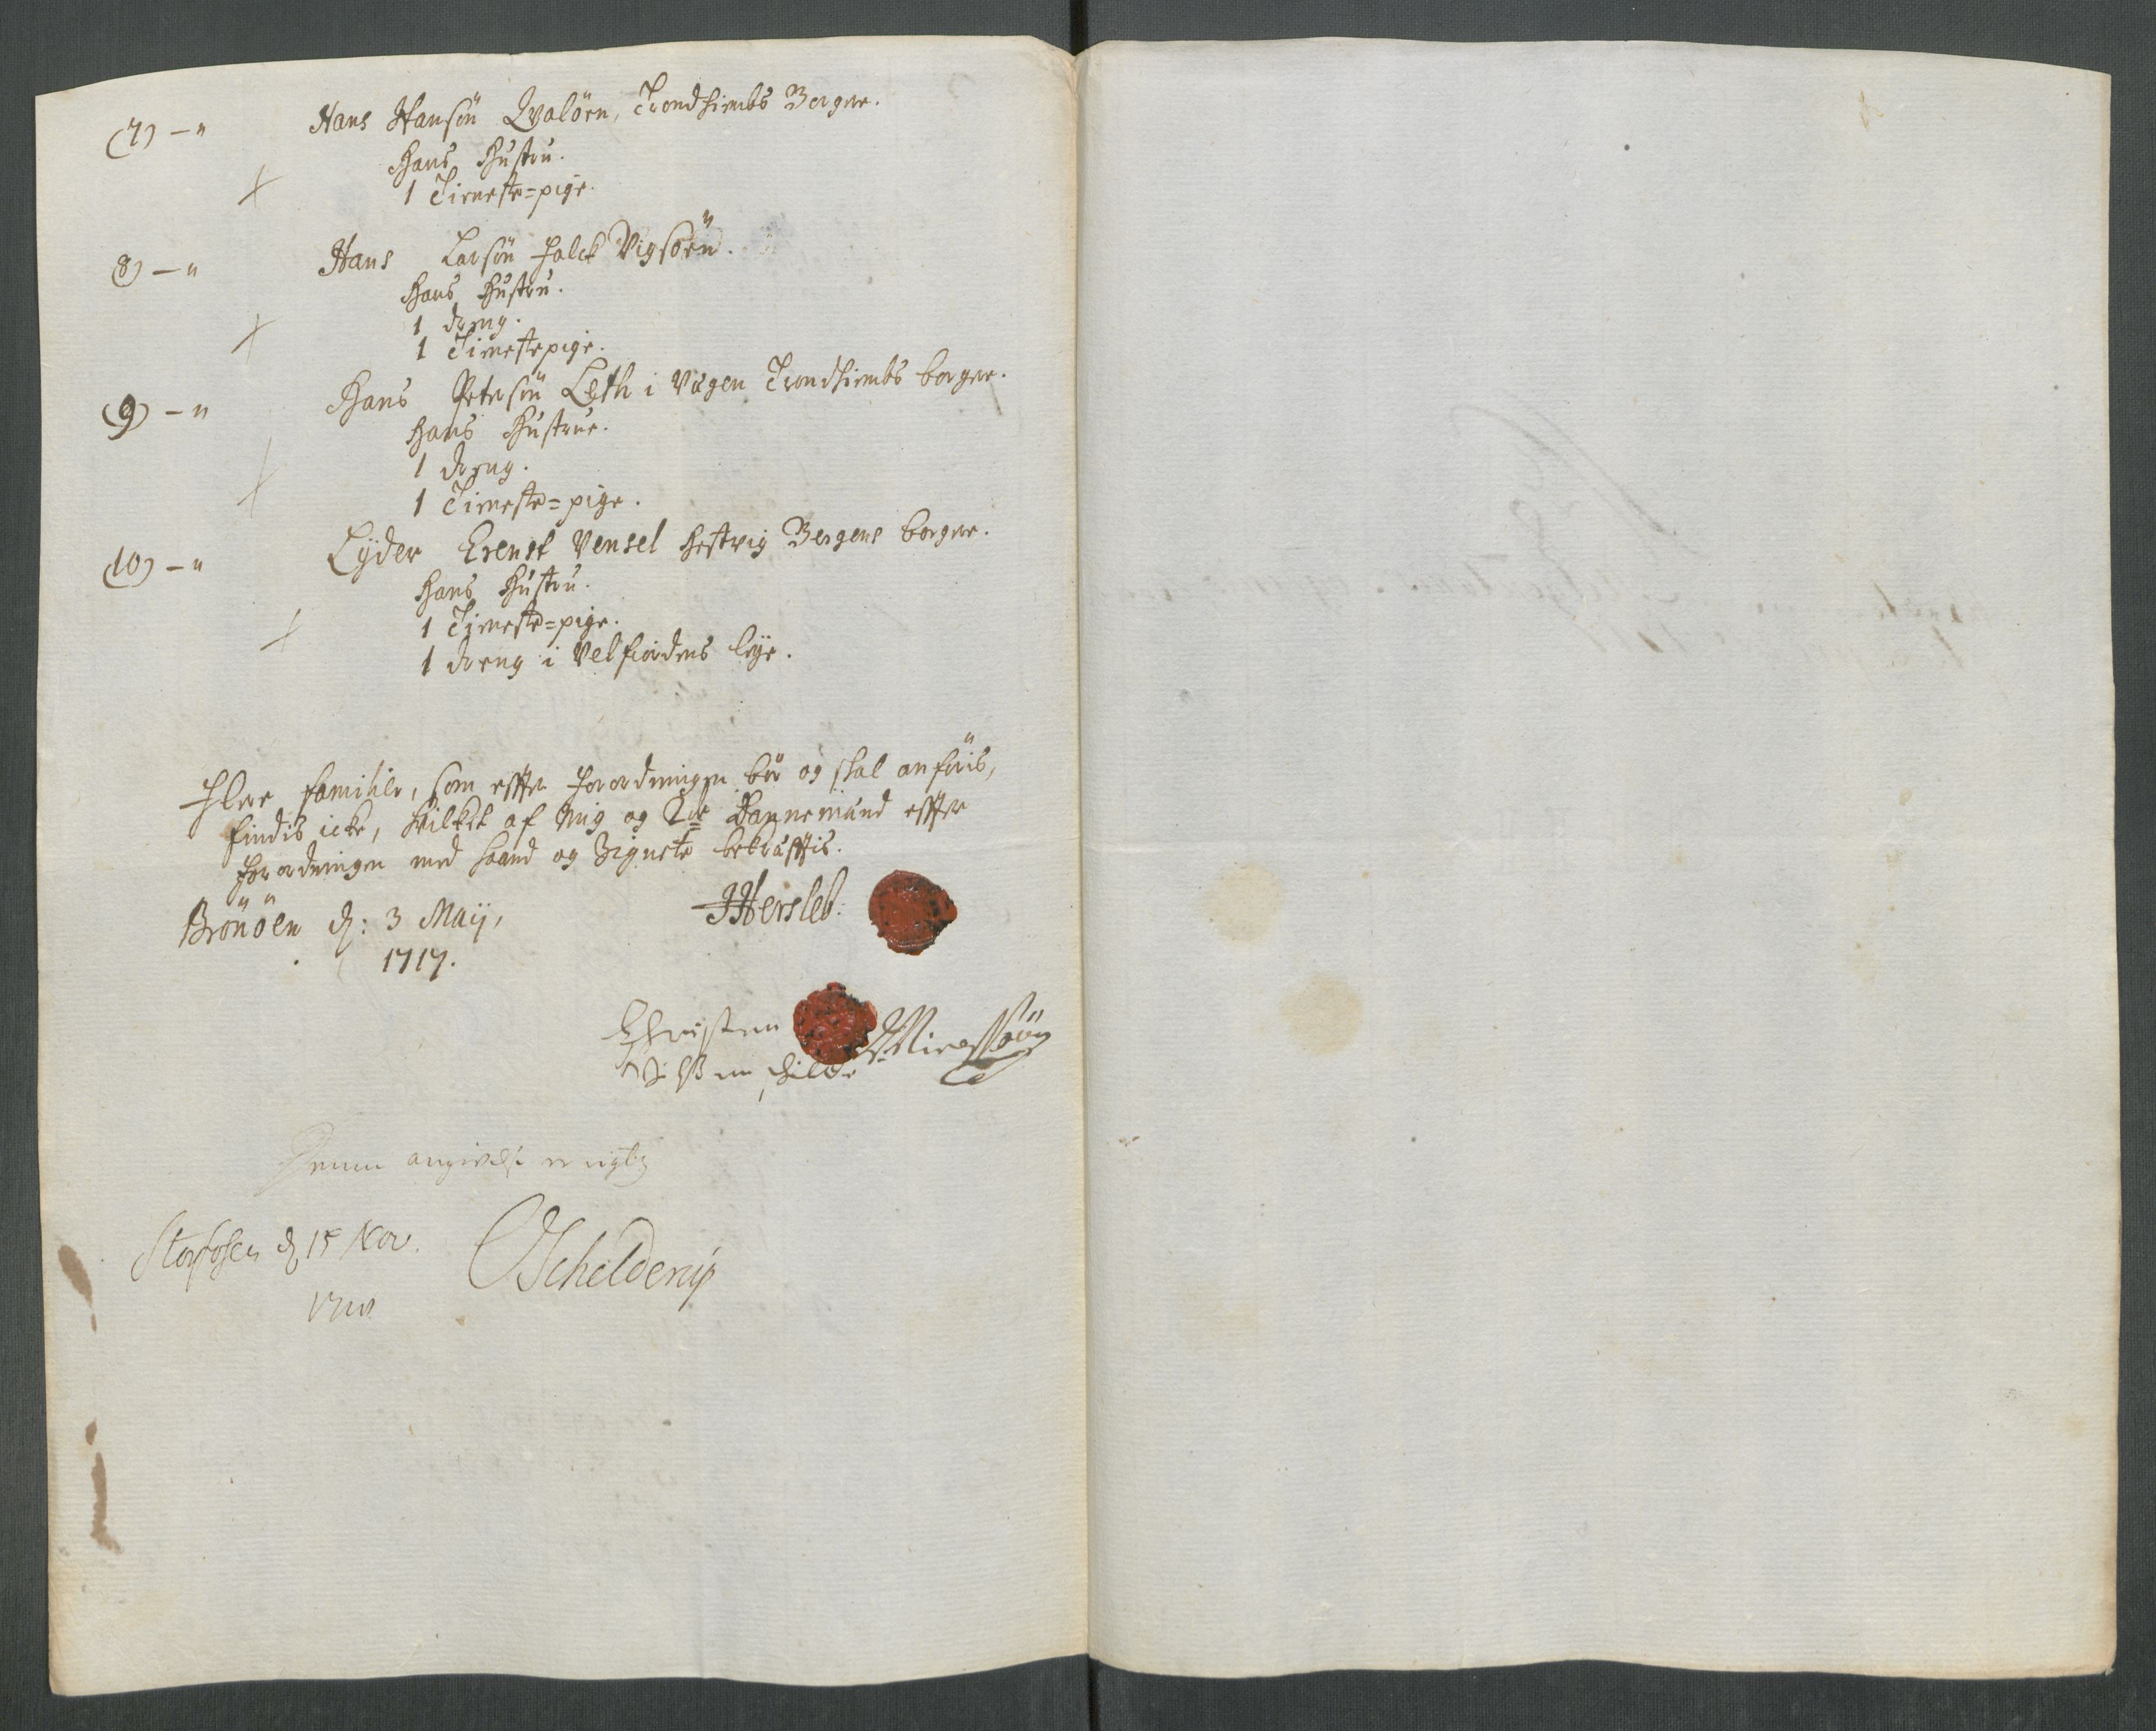 (7) – " Hans Hansön Qvalöen, Trondhiembs Borger.
Hans Hustru.
1 Tieneste=pige.
8) – " Hans Larsön Falck Vigsöen.
Hans Hustru.
1 dreng.
1 Tienestepige.
(9) – " Hans Petersön Leth i Vågen Trondhiembs borger.
Hans Hustrue.
1 dreng.
1 Tieneste=pige.
(10) – " Lÿder Erenst Vensel Hestvig Bergens borger.
Hans Hustru.
1 Tieneste=pige.
1 dreng i Velfiordens leye.
Flere familier, som effter forordningen bör og skal anföris,
findis icke, hvilket af Mig og Dannemænd effter
forordningen med haand og Signete bekräfftis.
Brönöen d: 3 Maij,
1717.
JHersleb:
Christen
Nielssøn
Denne angivelse er rigtig
Storfosen d 15 Nov.
OSchelderup